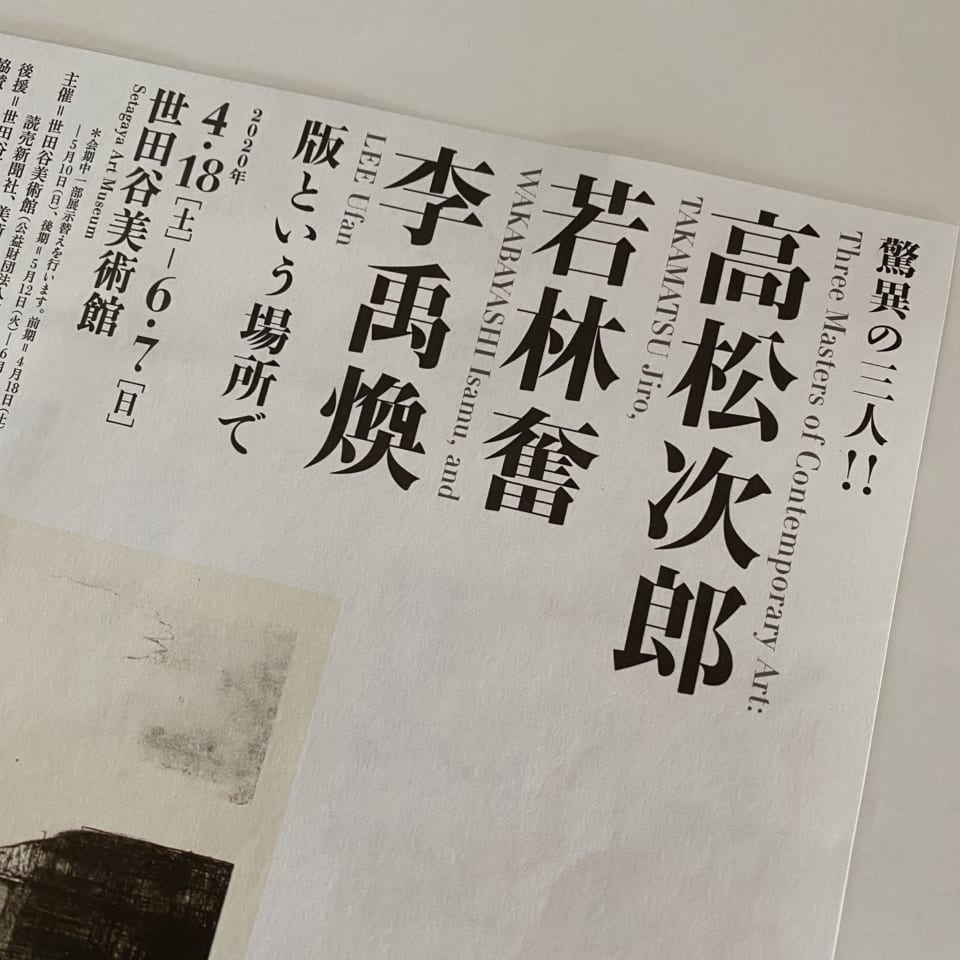 驚異の三人!!
Three Masters of Contemporary Art:
高松次郎
TAKAMATSU Jiro,
若林奮
WAKABAYASHI Isamu, and
李禹煥
LEE Ufan
版という場所で
2020年
4・18[土]—6・7[日]
世田谷美術館
Setagaya Art Museum
*会期中一部展示替えを行います。前期=4月18日(土)
—5月10日(日) 後期=5月12日(火)—6月
主催=世田谷美術館(公益財団法人
後援=
読売新聞社、美術
協賛=世田谷